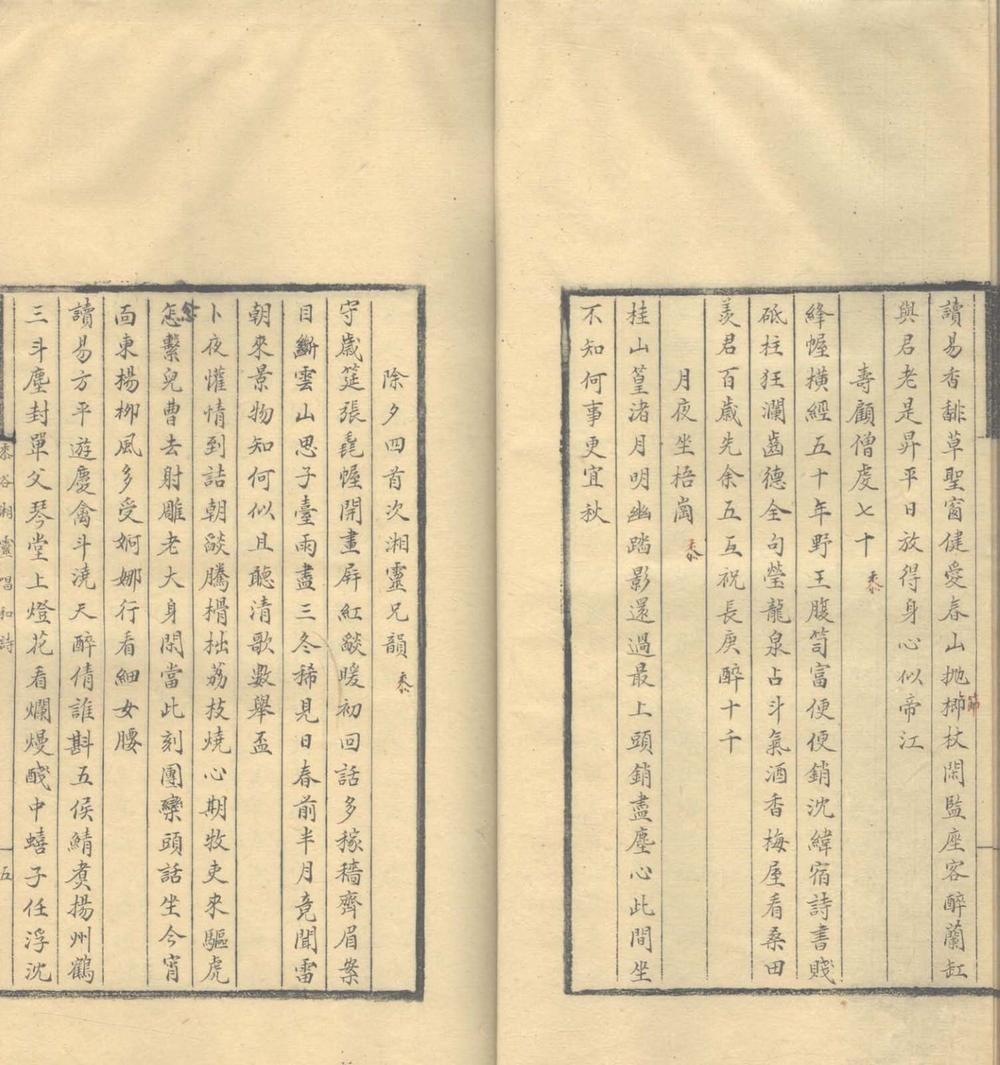 讀易香齁草聖窗健愛春山拋擲杖閑監座客醉蘭缸
節
與君老是昇平日放得身心似帝江
壽顧僧虔七十 黍
絳幄橫經五十年野王腹笥富便便銷沈緯宿詩書賤
砥柱狂瀾齒德全句瑩龍泉占斗氣酒香梅屋看桑田
羨君百歲先余五互祝長庚醉十千
月夜坐梧崗 黍
桂山篁渚月明幽踏影還過最上頭銷盡塵心此間坐
不知何事更宜秋
除夕四首次湘靈兄韻 黍
守歲筵張毳幄開畫屏紅燄暖初回話多稼穡齊眉案
目斷雲山思子臺雨盡三冬稀見日春前半月竟聞雷
朝來景物知何似且聽清歌數舉盃
卜夜懽情到詰朝燄騰榾柮荔枝燒心期牧吏來驅虎
怎繫兒曹去射雕老大身閑當此刻團欒頭話坐今宵
面東楊柳風多受婀娜行看細女腰
讀易方平遊慶禽斗澆天醉倩誰斟五侯鯖煑揚州鶴
三斗塵封單父琴堂上燈花看爛熳醆中蟢子任浮沈
黍谷湘靈唱和詩
五